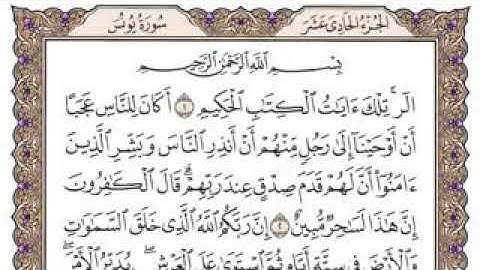 الجُزْءُ الحَادِى عَشَرَ
سُورَةُ يُونُسَ
بِسْمِ ٱللَّهِ ٱلرَّحْمَٰنِ ٱلرَّحِيمِ
الٓر ۚ تِلْكَ ءَايَٰتُ ٱلْكِتَٰبِ ٱلْحَكِيمِ ١ أَكَانَ لِلنَّاسِ عَجَبًا
أَنْ أَوْحَيْنَآ إِلَىٰ رَجُلٍ مِّنْهُمْ أَنْ أَنذِرِ ٱلنَّاسَ وَبَشِّرِ ٱلَّذِينَ
ءَامَنُوٓا۟ أَنَّ لَهُمْ قَدَمَ صِدْقٍ عِندَ رَبِّهِمْ ۗ قَالَ ٱلْكَٰفِرُونَ
إِنَّ هَٰذَا لَسَٰحِرٌ مُّبِينٌ ٢ إِنَّ رَبَّكُمُ ٱللَّهُ ٱلَّذِى خَلَقَ ٱلسَّمَٰوَٰتِ
وَٱلْأَرْضَ فِى سِتَّةِ أَيَّامٍ ثُمَّ ٱسْتَوَىٰ عَلَى ٱلْعَرْشِ ۖ يُدَبِّرُ ٱلْأَمْرَ ۖ